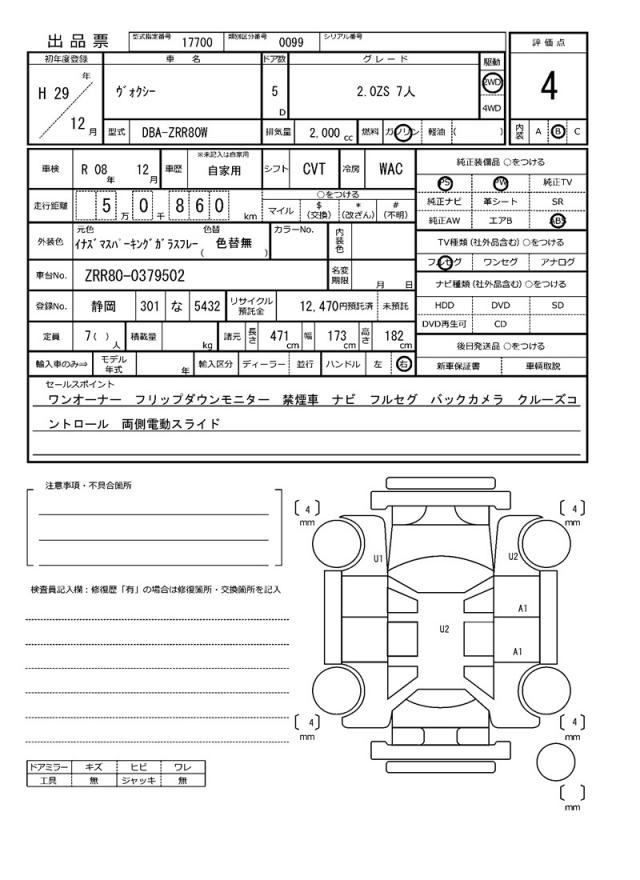 出品票 型式指定番号 17700 類別区分番号 0099 シリアル番号
評価点
4
内装 A B C
初年度登録 車名 ドア数 グレード 駆動
H 29 年 12 月 ヴォクシー 5 D 2.0ZS 7人 2WD 4WD
型式 DBA-ZRR80W 排気量 2,000 cc 燃料 ガソリン 軽油 ( )
車検 R 08 年 12 月 車歴 ※未記入は自家用 自家用 シフト CVT 冷房 WAC
走行距離 5 万 0 千 8 6 0 km ○をつける
マイル $ (交換) * (改ざん) # (不明)
外装色 元色 イナズマスパーキングガラスフレー 色替 ( 色替無 ) カラーNo. 内装色
車台No. ZRR80-0379502 名変期限 月 日
登録No. 静岡 301 な 5432 リサイクル預託金 12,470円預託済 未預託
定員 7( ) 人 積載量 kg 諸元 長さ 471 cm 幅 173 cm 高さ 182 cm
輸入車のみ⇒ モデル年式 年 輸入区分 ディーラー 並行 ハンドル 左 右
純正装備品 ○をつける
PS PW 純正TV
純正ナビ 革シート SR
純正AW エアB ABS
TV種類(社外品含む) ○をつける
フルセグ ワンセグ アナログ
ナビ種類(社外品含む) ○をつける
HDD DVD SD
DVD再生可 CD
後日発送品 ○をつける
新車保証書 車輌取説
セールスポイント
ワンオーナー フリップダウンモニター 禁煙車 ナビ フルセグ バックカメラ クルーズコ
ントロール 両側電動スライド
注意事項・不具合箇所
検査員記入欄：修復歴「有」の場合は修復箇所・交換箇所を記入
ドアミラー キズ ヒビ ワレ
工具 無 ジャッキ 無
[ 4 ] mm
[ 4 ] mm
U1
U2
A1
U2
A1
[ 4 ] mm
[ 4 ] mm
[ ] mm